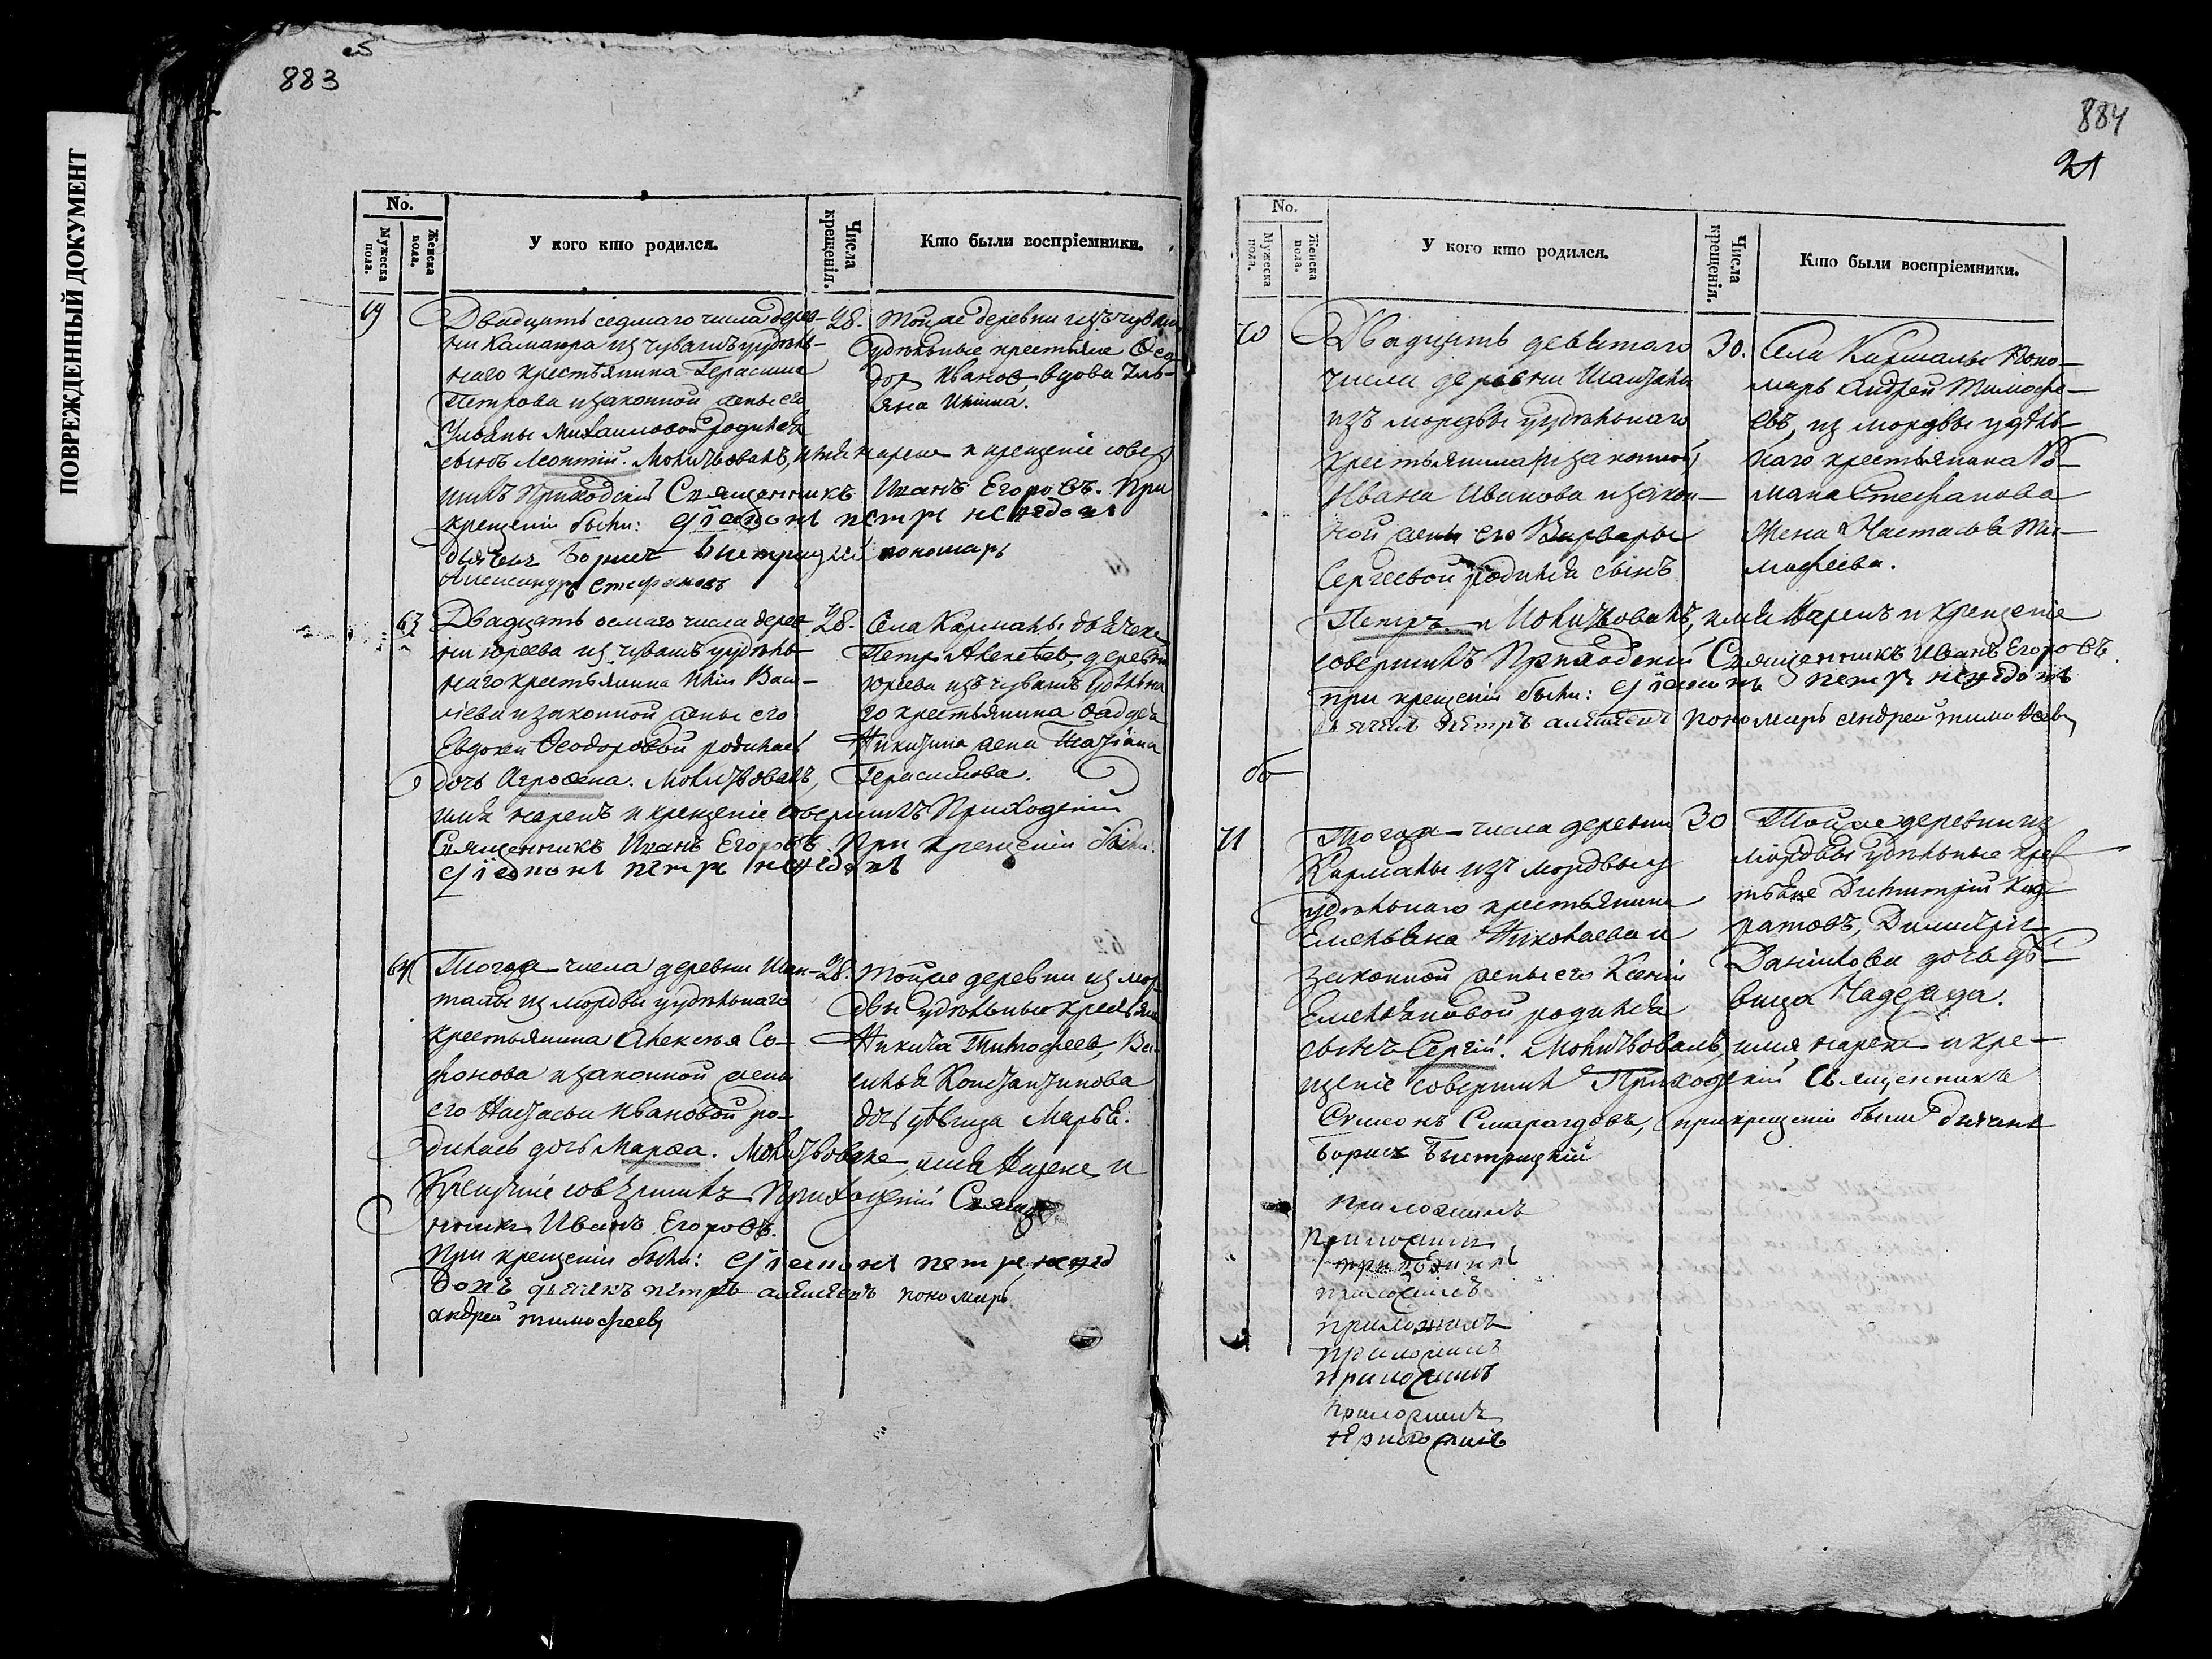 ПОВРЕЖДЕННЫЙ ДОКУМЕНТ
883
No.
Мужеска пола.
Женска пола.
У кого кто родился.
Числа крещенія.
Кто были воспріемники.
69
Двадцать седмаго числа дерев-
ни Камаюра из чувашъ удѣль-
наго крестьянина Герасима
Петрова и законной жены его
Ульяны Михаиловой родился
сынъ Леонтій. Молитвовалъ, имя нареч и крещеніе совер
шилъ Приходскій Священникъ Иванъ Егоровъ. При
крещеніи были: Діаконъ петръ
дьячекъ Борисъ Быстрицкій пономарь
Александръ Стефановъ
28.
Тойже деревни изъ чуваш
удѣльные крестьяне Ѳео
дор Иванов, вдова Уль-
яна
63
Двадцать осмаго числа дерев
ни Юреева из чувашъ удѣль-
наго крестьянина Ильи Васи-
льева и законной жены его
Евдокеи Ѳеодоровой родилась
дочь Агроѳена. Молитвовалъ,
имя наречъ и крещеніе совершилъ Приходскій
Священникъ Иванъ Егоровъ. При крещеніи были:
Діаконъ петръ
28.
Села Кармалы дьячекъ
Петръ Алексѣев, деревни
Юреева изъ чувашъ удѣльна
го крестьянина Фаддея
Никитина жена Татіана
Герасимова.
64
Тогоже числа деревни Шан-
талы из мордвы удѣльнаго
крестьянина Алексѣя Со-
фонова и законной жены
его Настасьи Ивановой ро-
дилась дочь Марѳа. Молитвовалъ, имя Нарече и
Крещеніе совершилъ Приходскій Священ
никъ Иванъ Егоровъ.
При крещеніи были: Діаконъ петръ
дьячекъ петръ алексеевъ пономарь
андрей тимофеевъ
28.
Тойже деревни из мор
двы удѣльные крестьяне
Никита Тимофеев, Ва-
силья Константинова
дочь дѣвица Марья.
884
21
No.
Мужеска пола.
Женска пола.
У кого кто родился.
Числа крещенія.
Кто были воспріемники.
70
Двадцать девятаго
числа деревни Шанталы
изъ мордвы удѣльнаго
крестьянина
Ивана Иванова и закон-
ной жены его Варвары
Сергеевой родился сынъ
Петръ. Молитвовалъ, имя Наречъ и крещеніе
совершилъ Приходскій Священникъ Иванъ Егоровъ.
При крещеніи были: Діаконъ петръ
дьячекъ петръ алексеевъ пономарь андрей тимоѳеевъ
30.
Села Кармалы Поно-
марь Андрей Тимофе-
евъ, из мордвы удѣль-
наго крестьянина Ро-
мана Стефанова
Жена Настасья Ти-
мофеева.
71
Тогоже числа деревни
Кармалы изъ мордвы
удѣльнаго крестьянина
Емельяна Николаева и
законной жены его Ксеніи
Емельяновой родился
сынъ Сергій. Молитвовалъ, имя нарече и кре-
щеніе совершилъ Приходскій Священникъ
Симонъ Смарагдовъ, при крещеніи были дьячекъ
Борисъ Быстрицкій
30
Тойже деревни из
мордвы удѣльные крес
тьяне Димитрій
Димитрія
Данилова дочь дѣ-
вица Надежда.
приложилъ
приложилъ
приложилъ
приложилъ
приложилъ
приложилъ
приложилъ
приложилъ
приложилъ